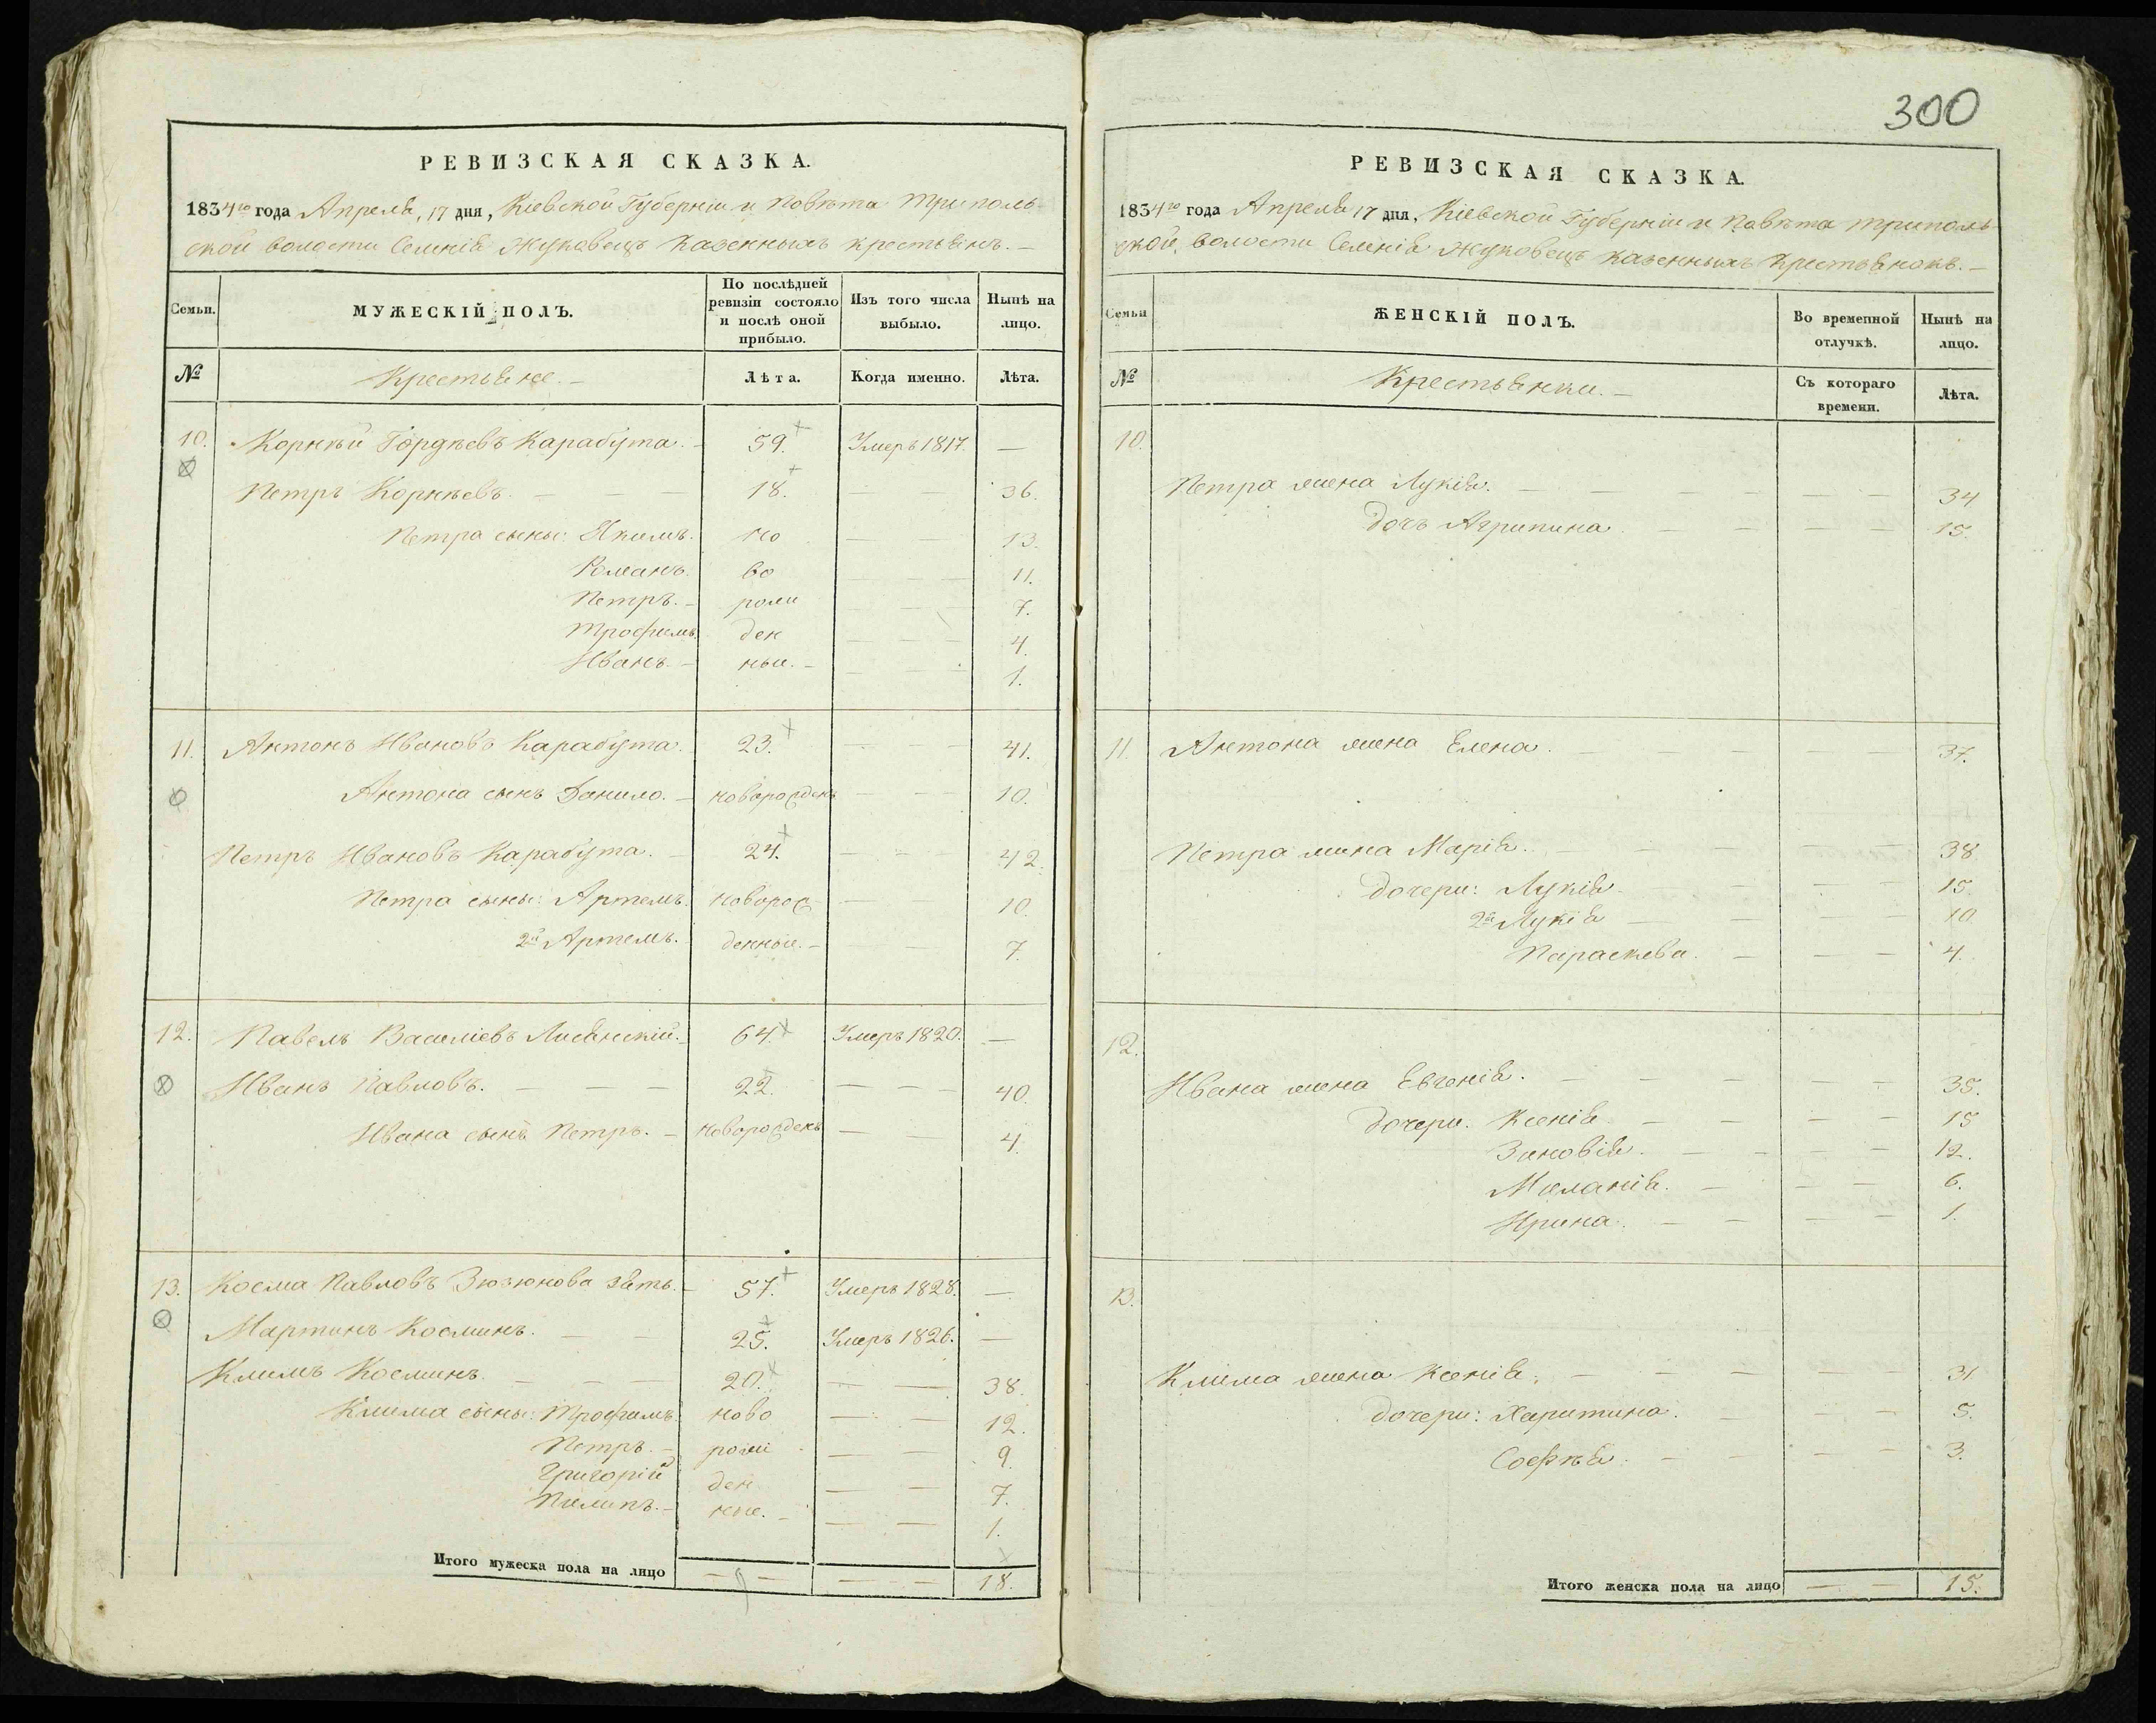 РЕВИЗСКАЯ СКАЗКА.
1834го года Апреля, 17 дня, Кіевской Губерніи и Повѣта Триполь
ской волости Селенія Жуковецъ Казенныхъ крестьянъ. —
Семьи. МУЖЕСКІЙ ПОЛЪ. По послѣдней ревизіи состояло и послѣ оной прибыло. Изъ того числа выбыло. Нынѣ на лицо.
№ Крестьяне. — Лѣта. Когда именно. Лѣта.
10. Корнѣй Гордѣевъ Карабута. — 59. Умеръ 1817. —
Петръ Корнѣевъ. — — — 18. — — 36.
Петра сыны: Якимъ. но — — 13.
Романъ. во — — — 11.
Петръ. — рож — — 7.
Трофимъ. ден — — — 4.
Иванъ. — ныи. — — — 1.
11. Антонъ Ивановъ Карабута. 23. — — 41.
Антона сынъ Данило. — новорожденъ — — — 10.
Петръ Ивановъ Карабута. — 24. — — 42.
Петра сыны: Артемъ. новорож — 10.
2й Артемъ. денные. — — — 7.
12. Павелъ Василіевъ Лисянскій. — 64. Умеръ 1820. —
Иванъ Павловъ. — — — 22. — — — 40.
Ивана сынъ Петръ. — новорожденъ — — 4.
13. Косма Павловъ Зюзюнова зять. — 57. Умеръ 1828. —
Мартинъ Косминъ. — — 25. Умеръ 1826. —
Климъ Косминъ. — — — 20. — — 38.
Клима сыны: Трофимъ. ново — — 12.
Петръ. — рож — — 9.
Григорій ден — — 7.
Пилипъ. — ные. — — — 1.
Итого мужеска пола на лицо — — — — — 18.
300
РЕВИЗСКАЯ СКАЗКА.
1834го года Апреля 17 дня. Кіевской Губерніи и Повѣта Триполь
ской волости Селенія Жуковецъ казенныхъ Крестьянокъ. —
Семьи ЖЕНСКІЙ ПОЛЪ. Во временной отлучкѣ. Нынѣ на лицо.
№ Крестьянки. — Съ котораго времени. Лѣта.
10.
Петра жена Лукія. — — — — — — 34
дочъ Агрипина. — — — — — 15.
11. Антона жена Елена. — — — — — — 37.
Петра жена Марія. — — — — — — 38.
дочери: Лукія. — — — 15.
2я Лукія — — — — 10
Параскева. — — — 4.
12.
Ивана жена Евгенія. — — — — — 35.
дочери. Ксенія. — — — — 15
Зиновія. — — — — 12.
Меланія. — — — 6.
Ирина. — — — — 1.
13.
Клима жена Ксенія. — — — — — 31
дочери: Харитина. — — — 5.
Софѣя. — — — — 3.
Итого женска пола на лицо — — 15.